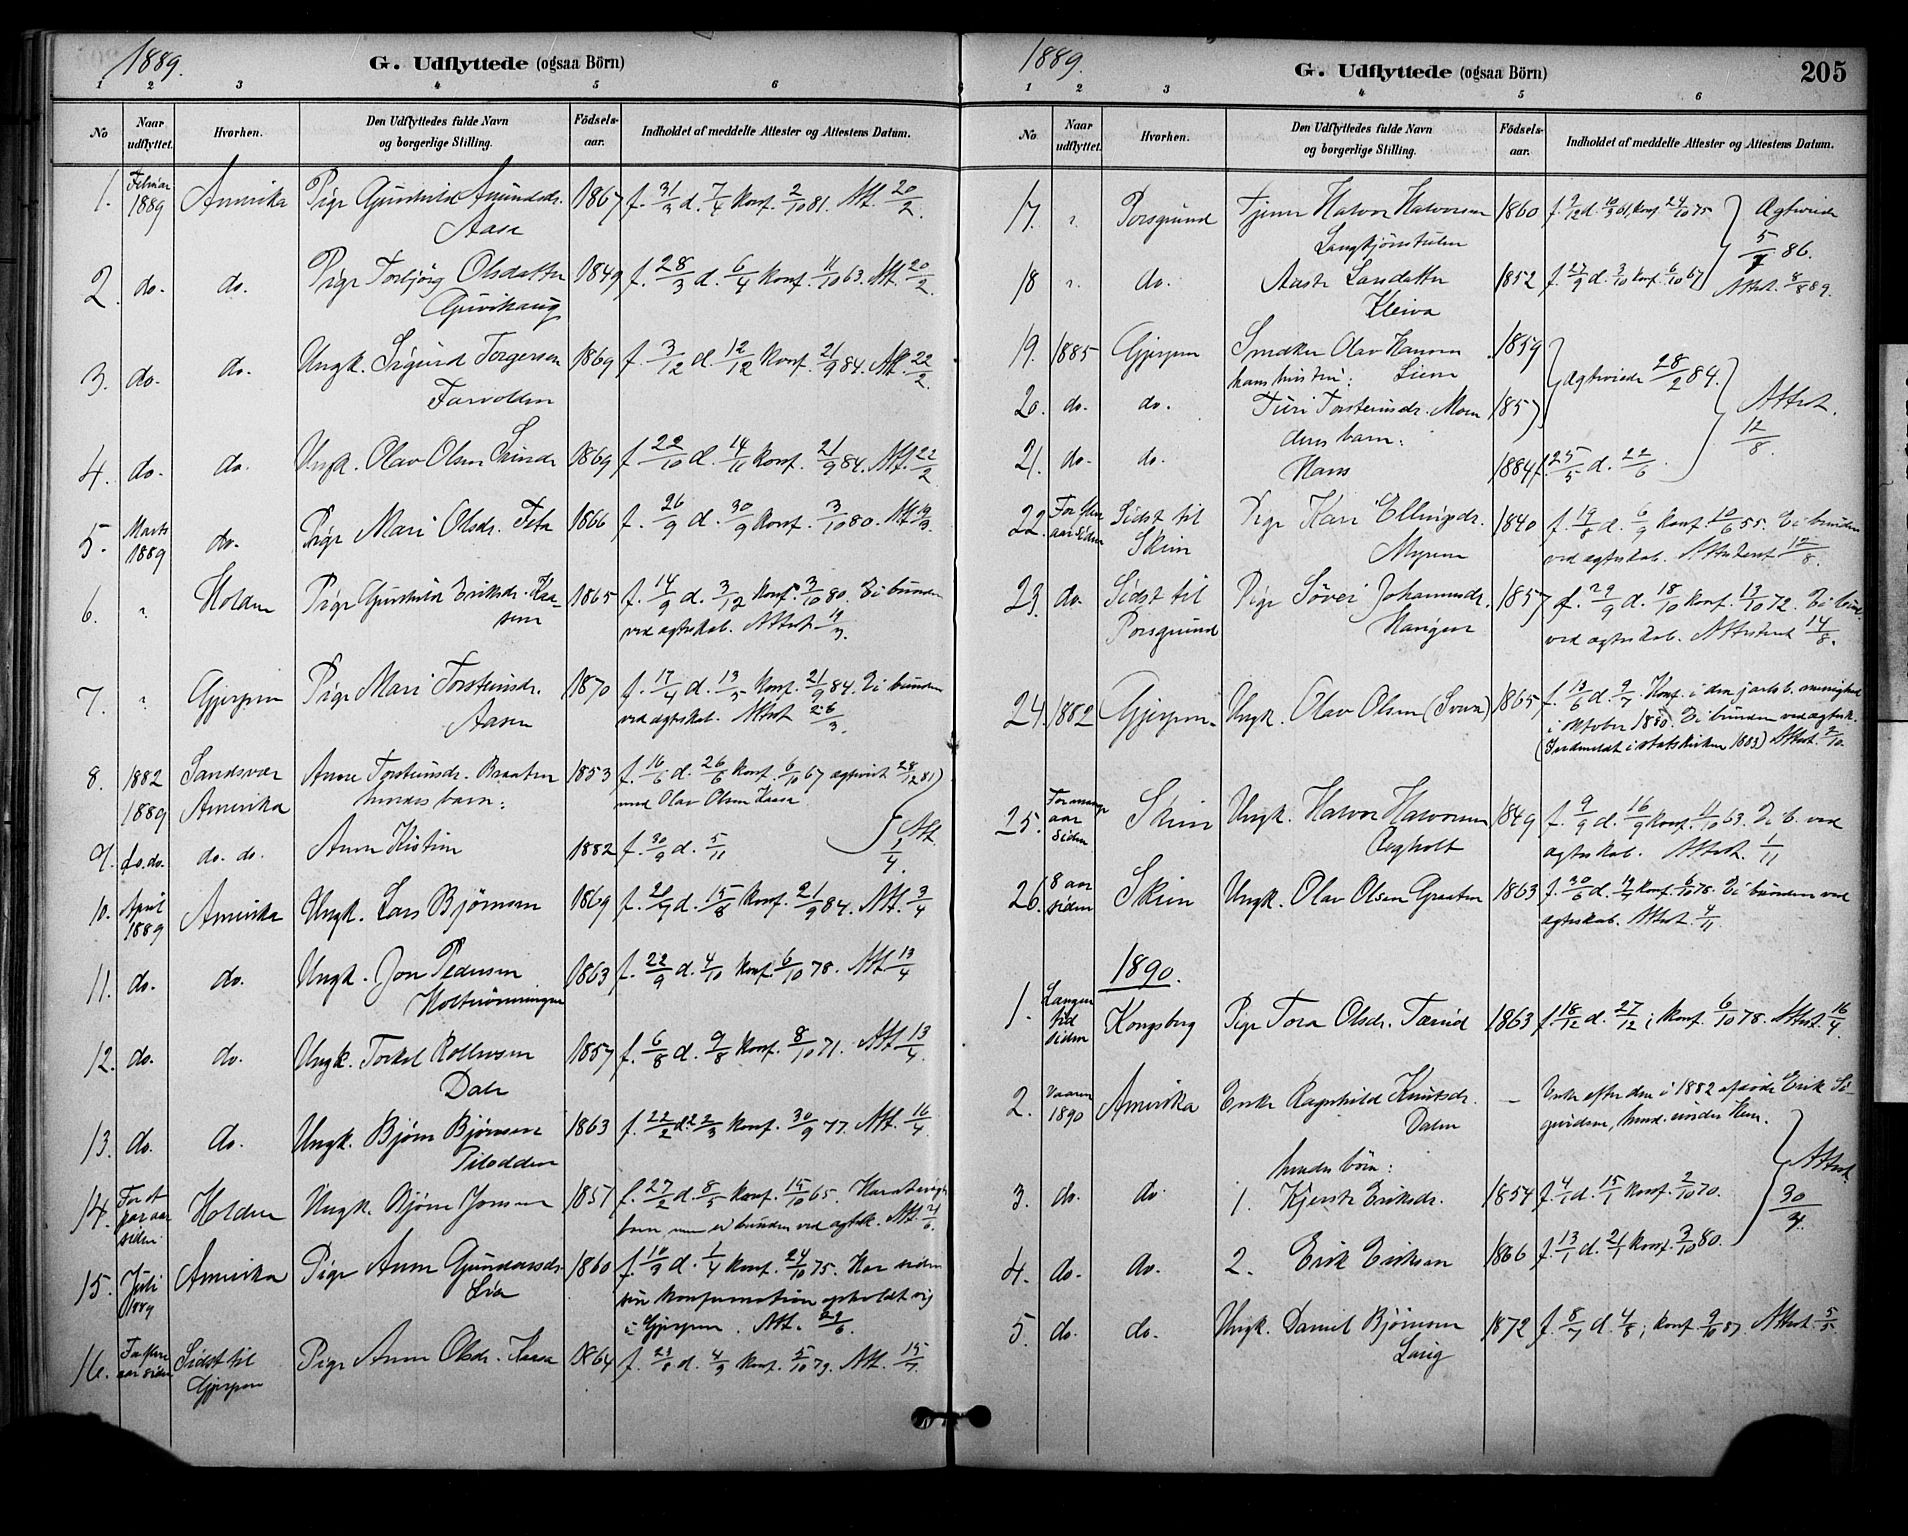 1889.
G. Udflyttede (ogsaa Börn)
1 2 3 4 5 6
No
Naar udflyttet.
Hvorhen.
Den Udflyttedes fulde Navn og borgerlige Stilling.
Födsels-aar.
Indholdet af meddelte Attester og Attestens Datum.
1. Februar 1889 Amerika Pige Gunhild Amundsdr. Aasa 1867 f. 31/3 d. 7/4 konf. 2/10 81. Att. 20/2.
2. do. do. Pige Torbjörg Olsdatter 1849 f. 28/3 d. 6/4 konf. 11/10 63. Att. 20/2.
3. do. do. Ungk. Sigurd Torgersen Farvolden 1869 f. 3/12 d. 12/12 konf. 21/9 84. Att. 22/2.
4. do. do. Ungk. Olav Olsen 1869 f. 22/10 d. 14/11 konf. 21/9 84. Att. 22/2
5. Marts 1889 do. Pige Mari Olsdr. 1866 f. 26/9 d. 30/9 konf. 3/10 80. Att.
6. " Holden Pige Gunhild Eriksdr. Kaasene 1865 f. 14/9 d. 3/12 konf. 3/10 80. Ei bunden
ved ægteskab. Attest
7. " Gjerpen Pige Mari Torsteinsdr. Aasen 1870 f. 17/4 d. konf. 21/9 84. Ei bunden
ved ægteskab. Attest 26/3.
8. 1882 Sandsvær Anne Torsteinsdr. Braaten 1853 f. 16/6 d. 26/6 konf. 6/10 67 ægteviet 28/12 81
1889 Amerika hendes barn: med Olav Olsen Kaasa
9. do. do. do. do. Anne Kistine 1882 f. 30/9 d. 5/11 Att. 1/4.
10. April 1889 Amerika Ungk. Lars Björnsen 1869 f. d. konf. 21/9 84. Att. 3/4
11. do. do. Ungk. Jon Pedersen 1863 f. 22/9 d. 4/10 konf. 6/10 78. Att. 13/4
12. do. do. Ungk. Torkel Rollevsen Dale 1857 f. 6/8 d. 9/8 konf. 8/10 71. Att. 13/4
13. do. do. Ungk. Bjørn Bjørnsen Pilodden 1863 f. 22/2 d. 22/3 konf. 30/9 77. Att. 16/4
14. For et par aar siden Holden Ungk. Bjørn Jonsen 1851 f. 27/2 d. 8/5 konf. 65.
barn men ei bunden ved ægtsk. Att.
15. Juli 1889 Amerika Pige Anne Gundersdr. Lia 1860 f. 10/3 d. 1/4 konf. 24/10 75. Har siden
sin konfirmation opholdt sig
i Gjerpen. Att. 29/6.
16. aar siden Sidst til Gjerpen Pige Anne Olsdr. Kaasa 1864 f. d. 4/9 konf. 5/10 79. Att. 15/7
1889.
G. Udflyttede (ogsaa Börn)
205
1 2 3 4 5 6
No
Naar udflyttet.
Hvorhen.
Den Udflyttedes fulde Navn og borgerlige Stilling.
Födsels-aar.
Indholdet af meddelte Attester og Attestens Datum.
17. " Porsgrund Tjener Halvor Halvorsen 1860 konf. 24/10 75 Ægteviede 5/7 86.
18 " do. Aaste Larsdatter Kleiva 1852 f. 27/9 d. 3/10 konf. 6/10 67 Attest. 8/8 89.
19. 1885 Gjerpen Snedker Olav Hansen Liene 1859 Ægteviede 28/2 84.
hans hustru:
20. do. do. Turi Torsteinsdr. Moen 1857 Attest. 12/8.
dens barn:
21. do. do. Hans 1884 f. 25/5 d. 22/6.
22. For flere aar siden Sidst til Skien Pige Kari Ellingsdr. Myrene 1840 f. d. 6/9 konf. 10/6 55. Ei bunden
ved ægteskab. Attesteret 12/8.
23. do. Sidst til Porsgrund Pige Søvei Johannesdr. Haugen 1857 f. 29/9 d. 18/10 konf. 13/10 72. Ei bund.
ved ægteskab. Attesteret 14/8.
24. 1882 Gjerpen Ungk. Olav Olsen (Svein) 1865 f. 13/6 d. 9/7 Konf. i den jarlsb. menighed
i oktober 1880. Ei bunden ved ægtesk.
(Indmeldt i statskirken 1883) Attest.
25. For mange aar siden Skien Ungk. Halvor Halvorsen 1849 f. 9/9 d. 16/9 konf. 11/10 63. Ei b. ved
ægteskab. Attest. 1/11
26. 8 aar siden Skien Ungk. Olav Olsen Graaten 1863 f. 30/6 d. konf. 6/10 78. Ei bunden ved
ægteskab. Attest. 4/11
1890.
1. Langen tid siden Kongsberg Pige Tora Olsdr. 1863 f. 18/12 d. 27/12; konf. 6/10 78. Attest. 16/4.
2. Vaaren 1890 Amerika Enke Ragnhild Knutsdr. Dalen — Enke efter den i 1882 afdøde Erik Si-
gurdsen,
hendes børn:
3. do. do. 1. Kjersti Eriksdr. 1854 f. 4/1 d. 15/1 konf. 2/10 70. Attest. 30/4.
4. do. do. 2. Erik Eriksen 1866 f. 13/1 d. 21/1 konf. 3/10 80.
5. do. do. Ungk. Daniel Bjørnsen 1872 f. 8/7 d. 4/8; konf. 9/10 87. Attest. 5/5.